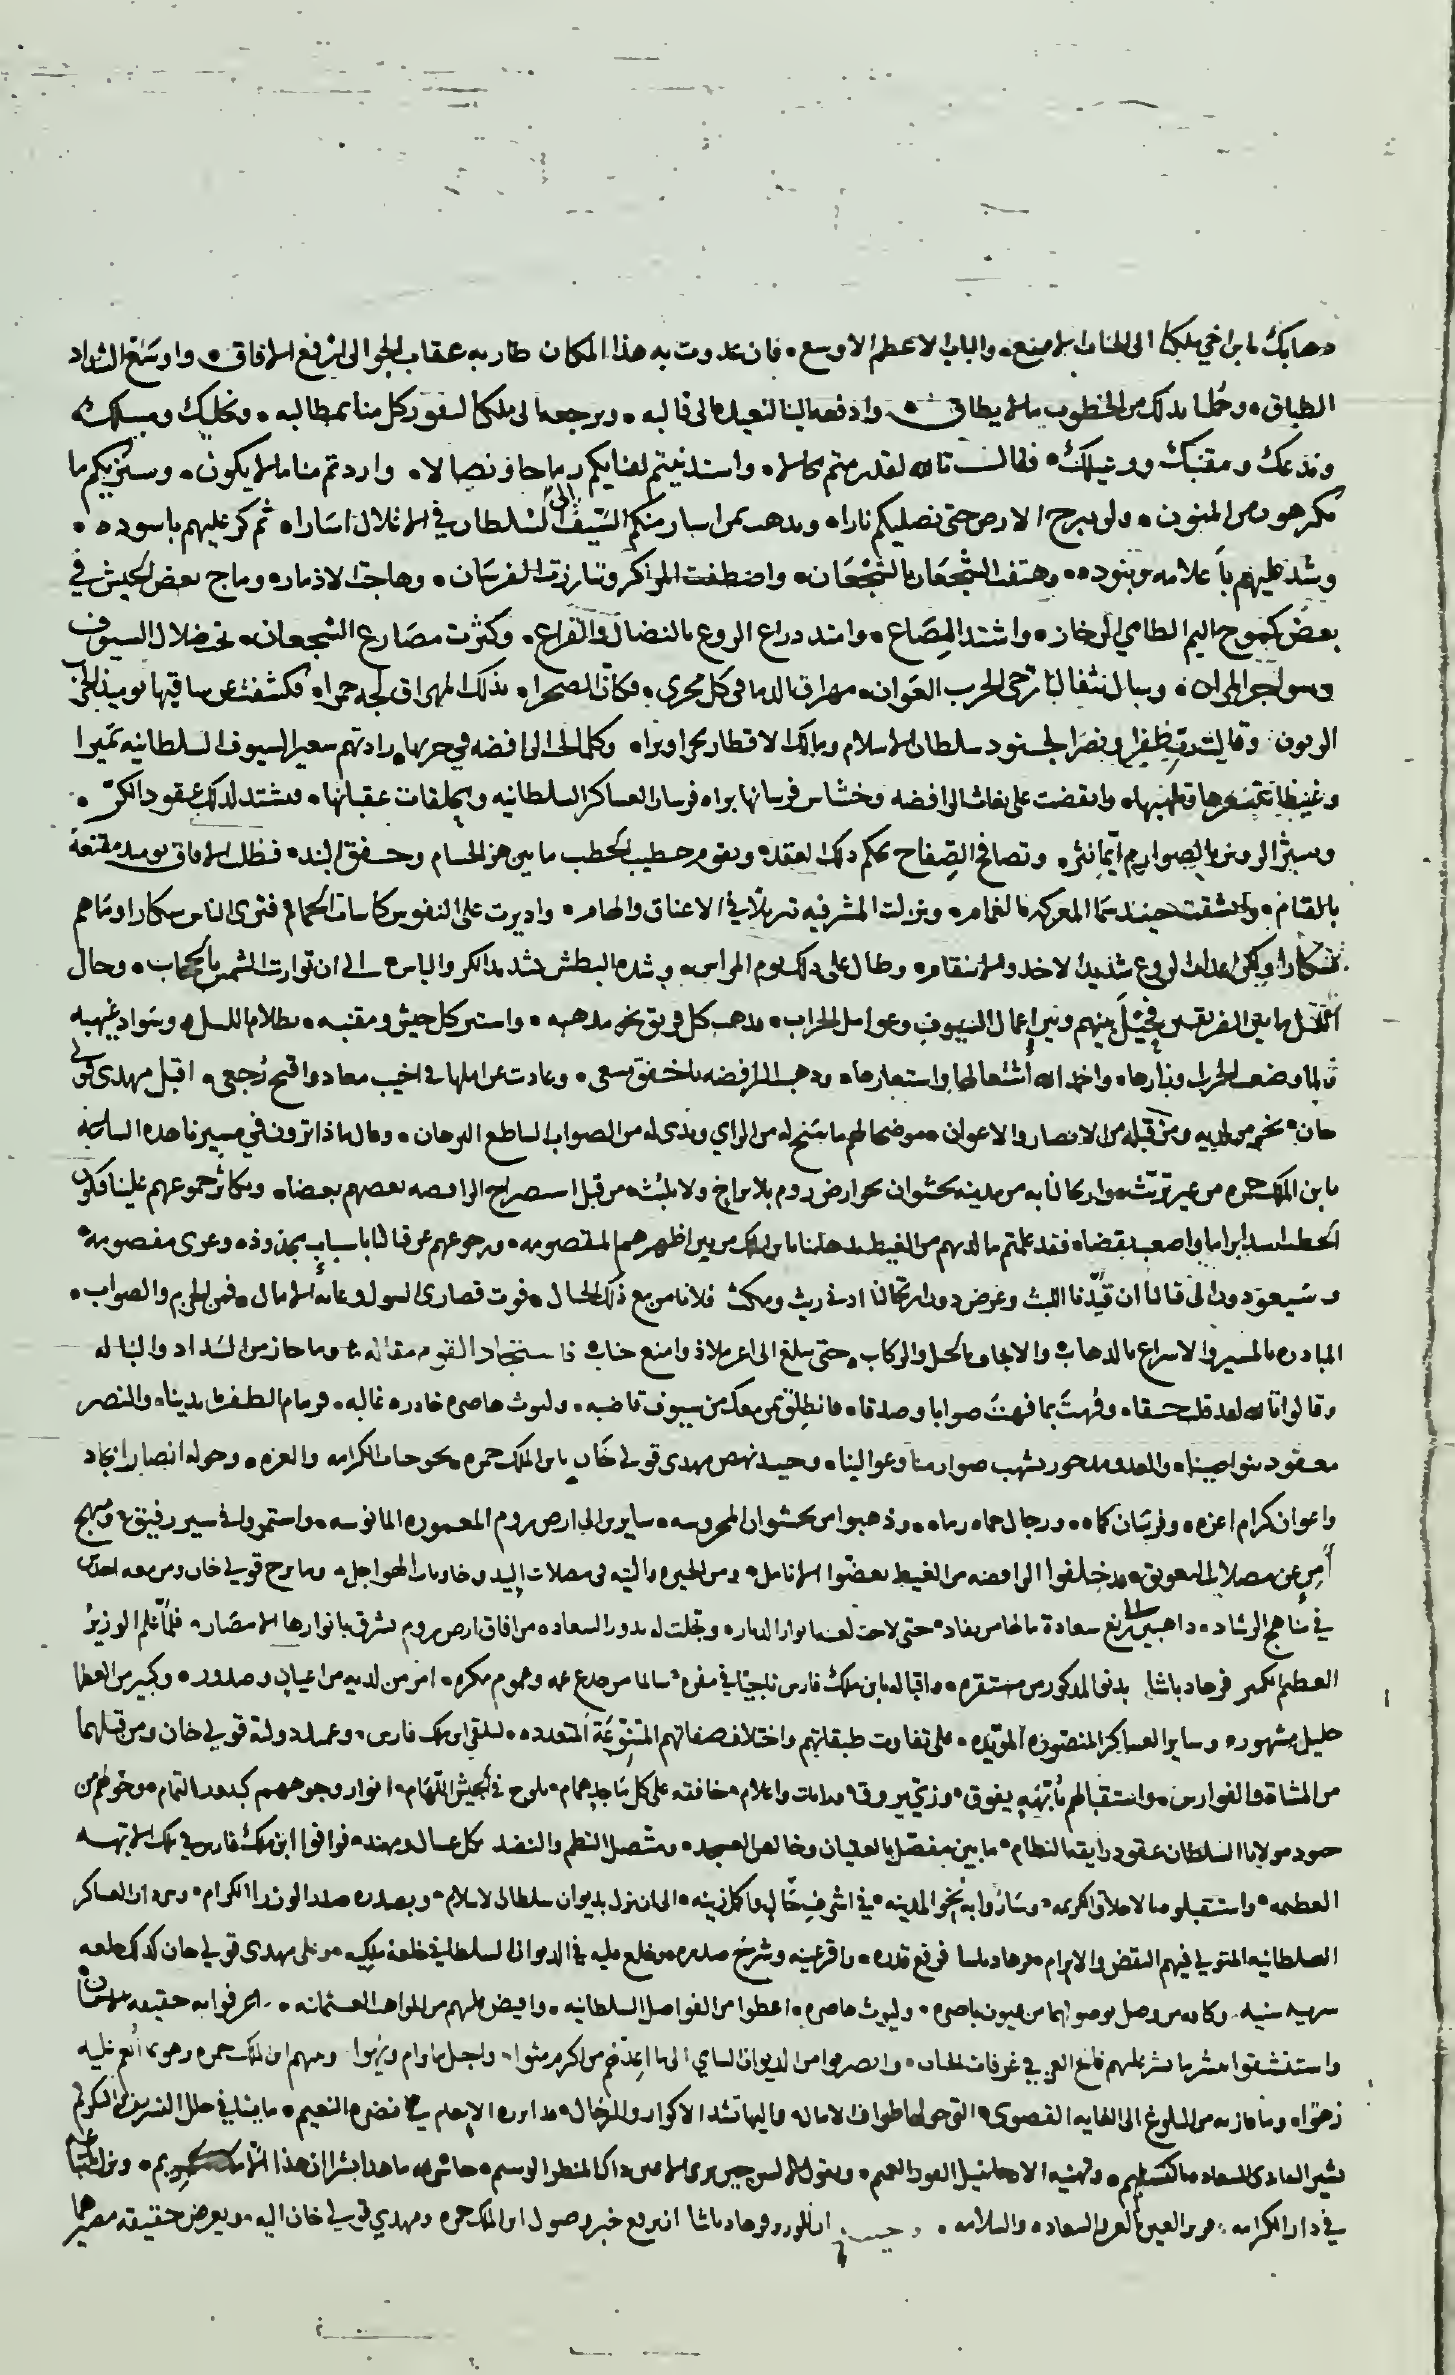 ذهابك بابن اخي ملكنا الى الجناب الامنع والباب الاعظم الاوسع فان غدوت به هذا المكان طار به عقاب الجو الى ارفع الافاق واوسع الشداد
الطباق وحملنا بذلك من الخطوب ما لا يطاق وادفعه الينا لنعيده الى قالبه ونرجعه الى ملكنا ليفوز كل منا بمطالبه ونخليك ومسلكك
وندعك ومقنبك ورعيلك فقال تالله لقد رمتم محالا واستدنيتم لمناياكم رماحا ونصالا واردتم منا ما لا يكون وسنريكم ما
تكرهون من المنون ولن نبرح الارض حتى نصليكم نارا ويذهب بمن اسار منكم السيف الى السلطان في الاغلال اسارا ثم كر عليهم باسوده
وشد عليهم باعلامه وبنوده وهتفت الشجعان بالشجعان وتبارزت الفرسان وهاجت الاذمار وماج بعض الجيش في
بعض كموج اليم الطامي الزخار واشتد المصاع وامتد ذراع الروع بالنضال والقراع وكثرت مصارع الشجعان تحت ظلال السيوف
وسال ثفال رحى الحرب العوان مهراق الدما في كل مجرى فكان الصحرا بذلك المهراق لجة حمرا فكشفت عن ساقيها يوميذ الحرب
الزبون وقالت رب ظفرا ونصرا لجنود سلطان الاسلام ومالك الاقطار بحرا وبرا وكلما لج الرافضه في حربها زادتهم سعير السيوف السلطانيه تميرا
وغيظا وانقضت على بغاث الرافضه وخشاش فرسانها بزاة فرسان العساكر السلطانيه ومحلقات عقبانها فيشتد لذلك عقود الكر
وتصافح الصفاح بحكم ذلك العقد ويقوم خطيب الخطب ما بين هز الحسام وخفق البند فظلت الافاق يوميذ مقنعة
بالقتام وانشقت حينيذ سما المعركه بالغمام ونزلت المشرفيه تنزيلا في الاعناق والهام واديرت على النفوس كاسات الحمام فترى الناس سكارا وما هم
بسكارا ولكن عذاب الروع شديد الاخذ والانتقام وطال على ذلك يوم المراس وشدة البطش بشديد الكر والباس الى ان توارت الشمس بالحجاب وحال
الليل ما بين الفريقين فحيل بينهم وبين اعمال السيوف وعوامل الحراب فذهب كل فريق نحو مذهبه واستتر كل جيش ومقنبه بظلام الليل وسواد غيهبه
فلما وضعت الحرب اوزارها واخمد الله اشتعالها واستعارها وذهب الرافضه باخفق مسعى وعادت عن املها في اخيب معاد واقبح رجعى اقبل مهدي قولي
خان نحو من لديه ومن قبله من الانصار والاعوان موضحا لهم ما سنح له من الراي وبدى له من الصواب الساطع البرهان وقال ماذا ترون في مسيرنا هذه الساعة
بابن الملك حمزه من غير تريث وارتحالنا به من مدينه نخشوان نحو ارض روم بلا براح ولا تلبث من قبل استصراخ الرافضه بعضهم بعضا وتكاثر جموعهم علينا فيكون
الخطب اشد ابراما واصعب نقضا فقد علمتم ما لديهم من الغيظ بذهابنا بابن الملك من بين اظهرهم المقصومه ورجوعهم عن قتالنا باسباب مجذوذه وعرى مفصومه
وسيعودون الى قتالنا ان قيدنا اللبث وعرض دون ارتحالنا ادنى ريث ومكث فلا نامن مع ذلك الحال فوت قصارى السول وغاية الامال فمن الحزم والصواب
المبادره بالمسير والاسراع بالذهاب والايجاف بالخيل والركاب حتى نبلغ الى اعز ملاذ وامنع جناب فاستجاد القوم مقاله وما حاز من السداد والنباله
وقالوا تالله لقد قلت حقا وفهت بما فهت صوابا وصدقا فانطلق بمن معك من سيوف قاضبه وليوث هاصره خادره غالبه فزمام الظفر بايدينا والنصر
معقود بنواصينا والعدو مدحور بشهب صوارمنا وعوالينا وحينيذ نهض مهدي قولي خان بابن الملك حمزه نحو جناب الكرامه والعزه وحوله انصار انجاد
واعوان كرام اعزه وفرسان كماه ورجال حماه رماه وذهبوا من نخشوان المحروسه سايرين الى ارض روم المعموره المانوسه واستمروا في سير رفيق ومنهج
امن عن مضلات التعويق وخلفوا الرافضه من الغيظ يعضوا الانامل ومن الحيره والتيه في مضلات البيد وخاويات الهواجل وما برح قولي خان ومن معه اخذين
في مناهج الرشاد ذاهبين الى مرتع سعادة ما لها من نفاد حتى لاحت لعينها انوار الديار وتجلت له بدور السعاده من افاق ارض روم تشرق بانوارها الامصار فلما علم الوزير
العظيم الكبير فرهاد باشا بدنو المذكور من مستقره واقباله بابن ملك فارس ناجيا في مفره سالما من خدع عمه وهموم مكره امر من لديه من اعيان وصدور وكبير من العظما
جليل مشهور وساير العساكر المنصوره المؤيده على تفاوت طبقاتهم واختلاف صفاتهم المتنوعة المتعدده لملتقى ابن ملك فارس وعميد دولته قولي خان ومن قبلهما
من المشاة والفوارس واستقبالهم بابهة تفوق وزي يروق ورايات واعلام خافقه على كل ماجد همام تلوح في الجيش اللهام انوار وجوههم كبدور التمام ونحورهم من
جود مولانا السلطان عقود رايقة النظام ما بين مفصل بالعقيان وخالص العسجد ومتصل النظم والنضد بكل عسال ومهند فوافوا ابن ملك فارس في تلك الابهه
العظيمه واستقبلوه بالاخلاق الكريمه وساروا به نحو المدينه في اشرف حال واكمل زينه الى ان نزل بديوان سلطان الاسلام وبصدره صدر الوزرا الكرام وسردار العساكر
السلطانيه المتولي فيهم النقض والابرام فرهاد باشا فرفع قدره واقر عينه وشرح صدره وخلع عليه في الديوان السلطاني خلعة ملكيه وعلى مهدي قولي خان كذلك خلعه
سريه سنيه وكل من وصل بوصولهما من عيون باصره وليوث هاصره اعطوا من الفواضل السلطانيه وافيض عليهم من المواهب العثمانيه ما عرفوا به حقيقه
واستنشقوا بنشر ما نشر عليهم فايح العرف في غرفات الجنان وانصرفوا من الديوان السامي الى ما اعد لهم من اكرم مثوا واجمل ماوى ومنهم ابن الملك حمزه وهو بما انعم عليه
زهوا وما فاز به من البلوغ الى الغايه القصوى التي حولها طواف الامال واليها تشد الاكوار والرحال نضرة النعيم مايسا في حلل التشريف والتكريم
يشير الغادي للسعاده بالتسليم وتهنيه الاحبا بنيل الفوز العميم ويقول حين يرى ذاك المنظر الوسيم حاش لله ما هذا بشرا ان هذا الا ملك كريم
في دار الكرامه قرير العين بالعز والسعاده والسلامه وحينيذ امر الوزير فرهاد باشا ان يرفع خبر وصول ابن الملك حمزه ومهدي قولي خان اليه ويعرض حقيقه مصيرهما